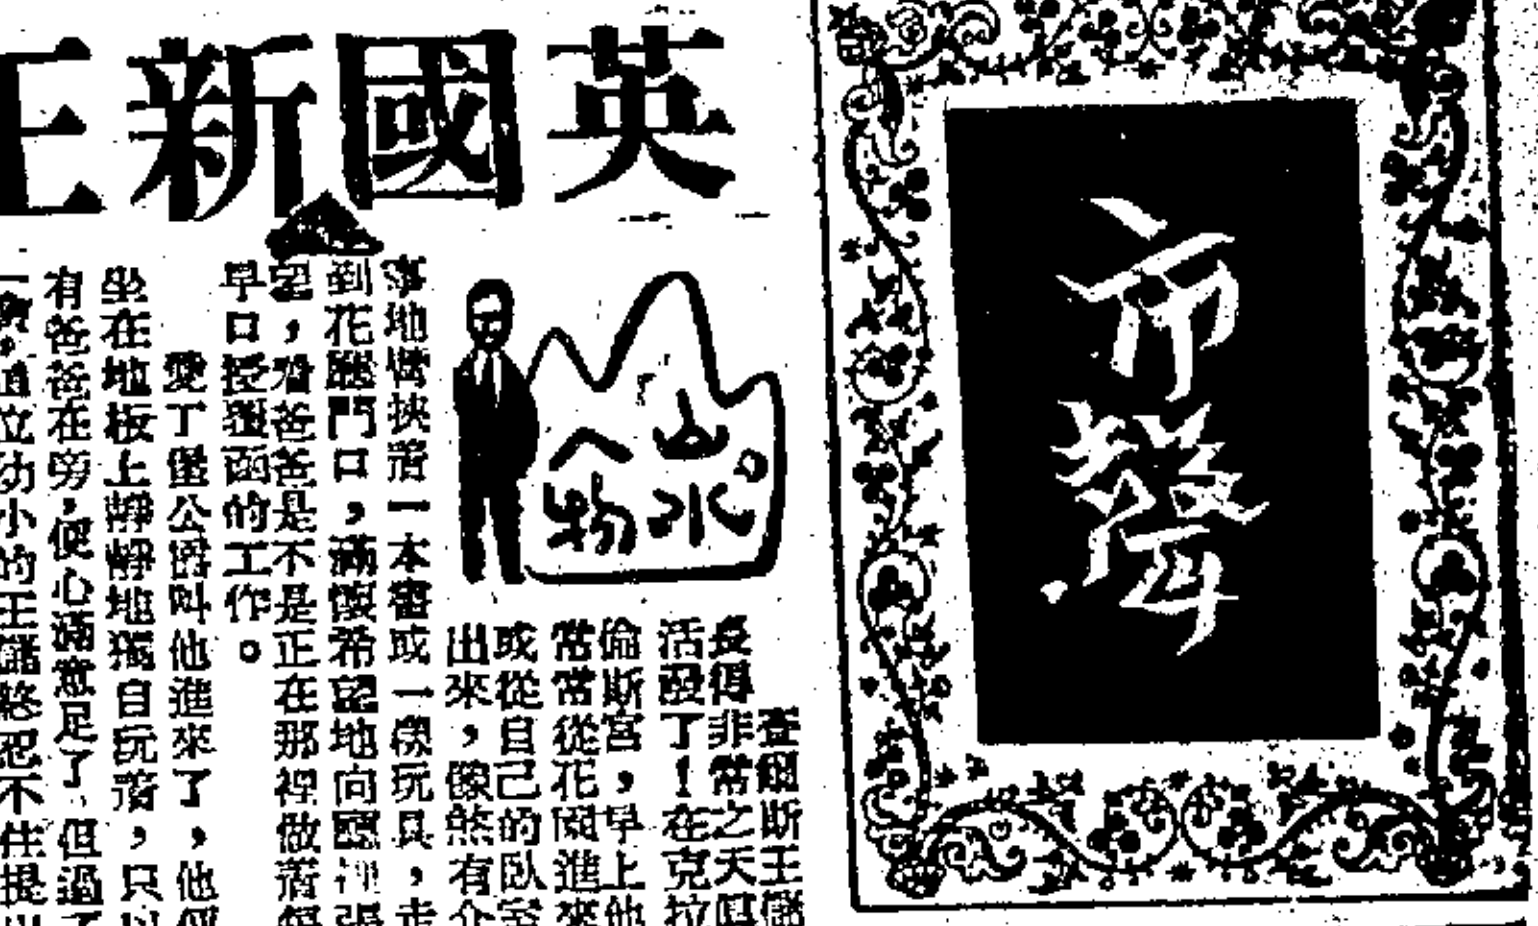 市聲
英國新王
山水
人物
查爾斯王儲
長得非常之天真
活潑了！在克拉
倫斯宮，早上他
常常從花園進來
或從自己的臥室
出來，像煞有介
事地臂挾着一本書或一樣玩具，走
到花廳門口，滿懷希望地向廳裡張
望，看爸爸是不是正在那裡做着每
早口授覆函的工作。
愛丁堡公爵叫他進來了，他便
坐在地板上靜靜地獨自玩着，只以
有爸爸在旁，便心滿意足了，但過了
一會，這位幼小的王儲終忍不住提出